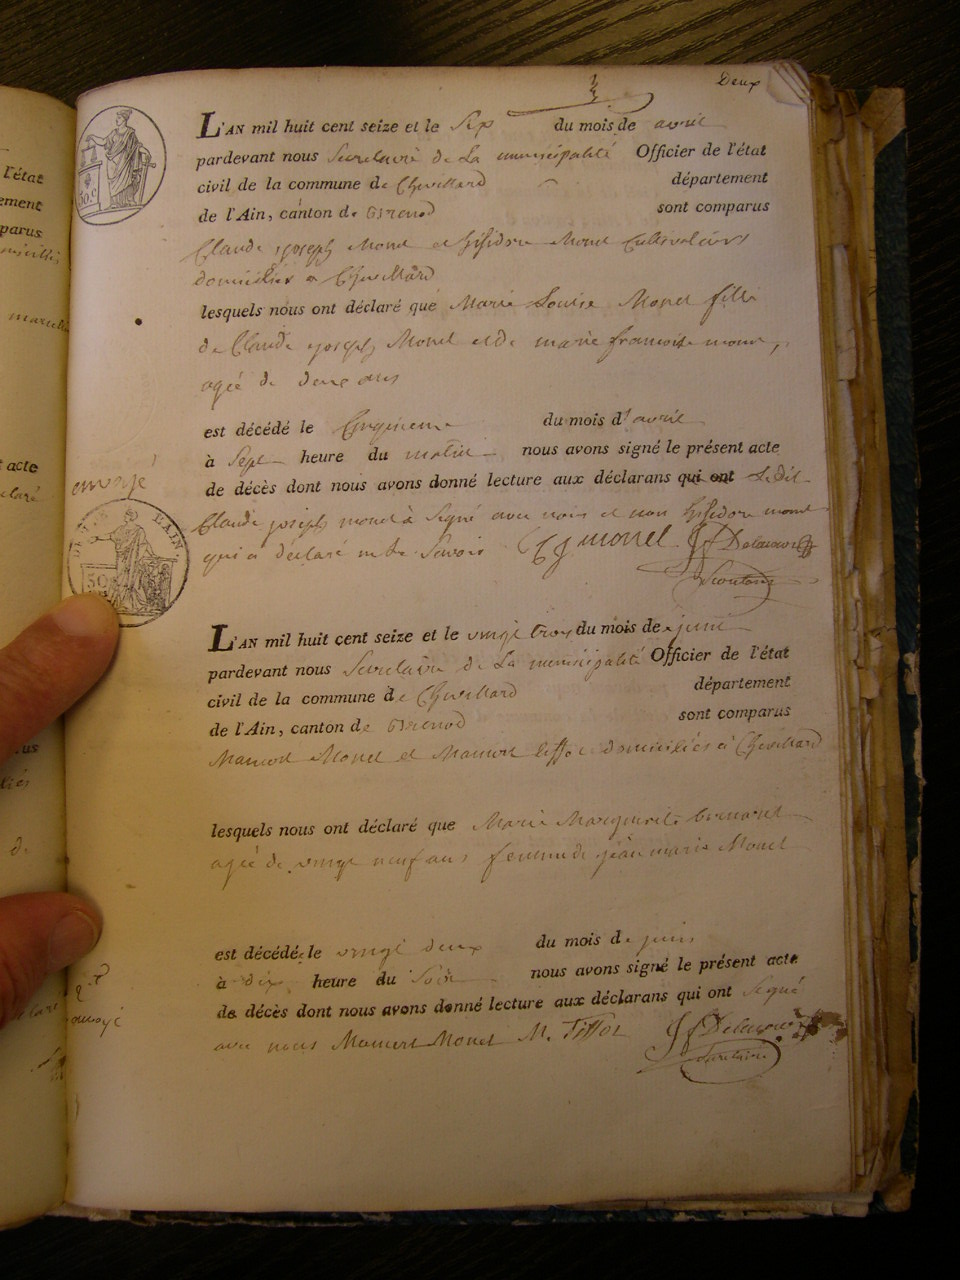 Deux
L'AN mil huit cent seize et le Sep du mois de avril
pardevant nous Secretaire de La municipalité Officier de l'état
civil de la commune de Chevillard département
de l'Ain, canton de Brenod sont comparus
Claude joseph Monet et hisidore Monet Cultivateurs
domiciliés a Chevillard
lesquels nous ont déclaré que Marie Louise Monet fille
de Claude joseph Monet et de marie francoise monet,
agée de deux ans
est décédé le Cinquieme du mois d'avril
à Sept heure du matin nous avons signé le présent acte
de décès dont nous avons donné lecture aux déclarans qui ont Ledit
Claude joseph monet à Signé avec nous et non hisidore monet
qui a déclaré ne Le Savoir CJ monet JF
envoyé
DEP. DE L'AIN
50
50 c
L'AN mil huit cent seize et le vingt trois du mois de juin
pardevant nous Secretaire de La municipalité Officier de l'état
civil de la commune de Chevillard département
de l'Ain, canton de Brenod sont comparus
Mamert Monet et Mamert tissot domiciliés à Chevillard
lesquels nous ont déclaré que Marie Marguerite
agée de vingt neuf ans femme de jean marie Monet
est décédé le vingt deux du mois de juin
à dix heure du Soir nous avons signé le présent acte
de décès dont nous avons donné lecture aux déclarans qui ont Signé
avec nous Mamert Monet M. Tissot JF
Secretaire
l'état
acte
envoyé